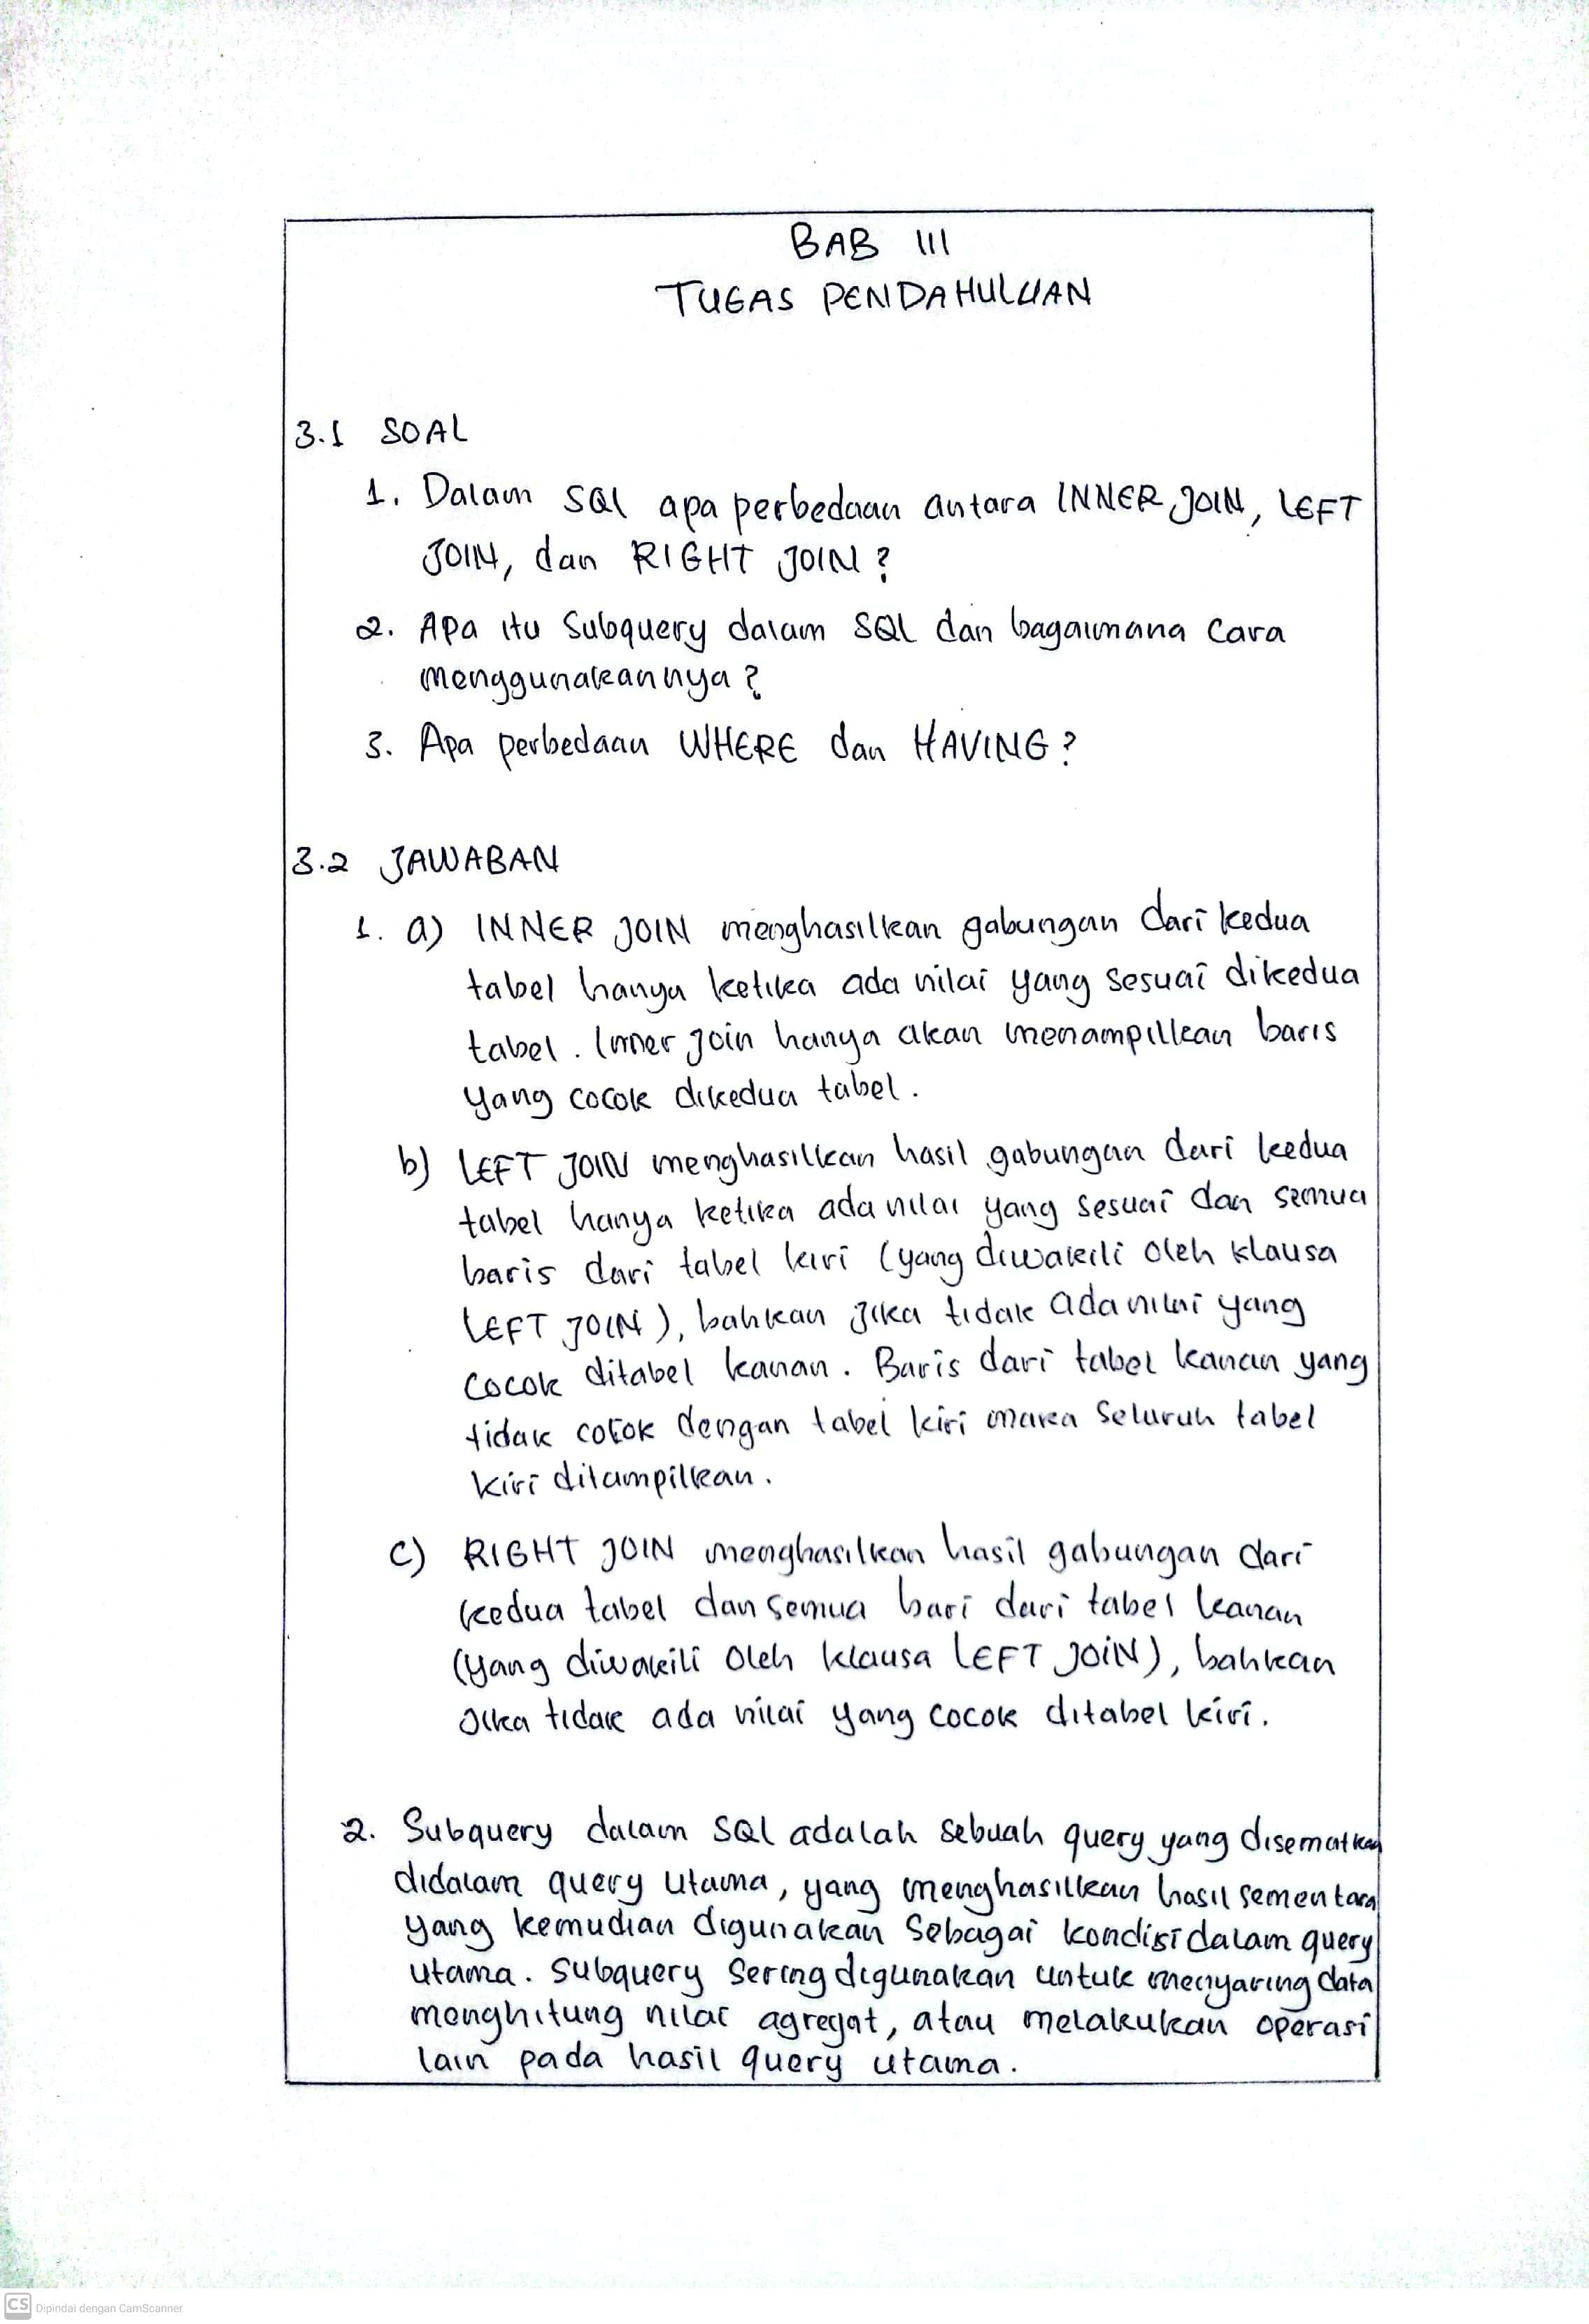 BAB III
TUGAS PENDAHULUAN
3.1 SOAL
1. Dalam SQL apa perbedaan antara INNER JOIN, LEFT
JOIN, dan RIGHT JOIN ?
2. Apa itu Subquery dalam SQL dan bagaimana Cara
menggunakannya ?
3. Apa perbedaan WHERE dan HAVING ?
3.2 JAWABAN
1. a) INNER JOIN menghasilkan gabungan dari kedua
tabel hanya ketika ada nilai yang sesuai dikedua
tabel. Inner join hanya akan menampilkan baris
yang cocok dikedua tabel.
b) LEFT JOIN menghasilkan hasil gabungan dari kedua
tabel hanya ketika ada nilai yang sesuai dan semua
baris dari tabel kiri (yang diwakili oleh klausa
LEFT JOIN), bahkan jika tidak ada nilai yang
cocok ditabel kanan. Baris dari tabel kanan yang
tidak cocok dengan tabel kiri maka seluruh tabel
kiri ditampilkan.
c) RIGHT JOIN menghasilkan hasil gabungan dari
kedua tabel dan semua bari dari tabel kanan
(yang diwakili oleh klausa LEFT JOIN), bahkan
jika tidak ada nilai yang cocok ditabel kiri.
2. Subquery dalam SQL adalah sebuah query yang disematkan
didalam query utama, yang menghasilkan hasil sementara
yang kemudian digunakan sebagai kondisi dalam query
utama. Subquery sering digunakan untuk menyaring data
menghitung nilai agregat, atau melakukan operasi
lain pada hasil query utama.
CS Dipindai dengan CamScanner